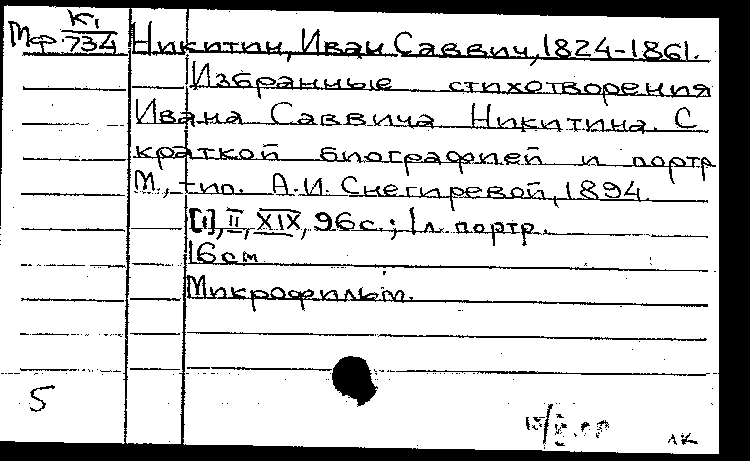 К1
Мф.734 Никитин, Иван Саввич, 1824-1861.
Избранные стихотворения
Ивана Саввича Никитина. С
краткой биографией и портр
М., тип. А.И. Снегиревой, 1894.
[1], II, XIX, 96с.; 1л. портр.
16см
Микрофильм.
5
лк